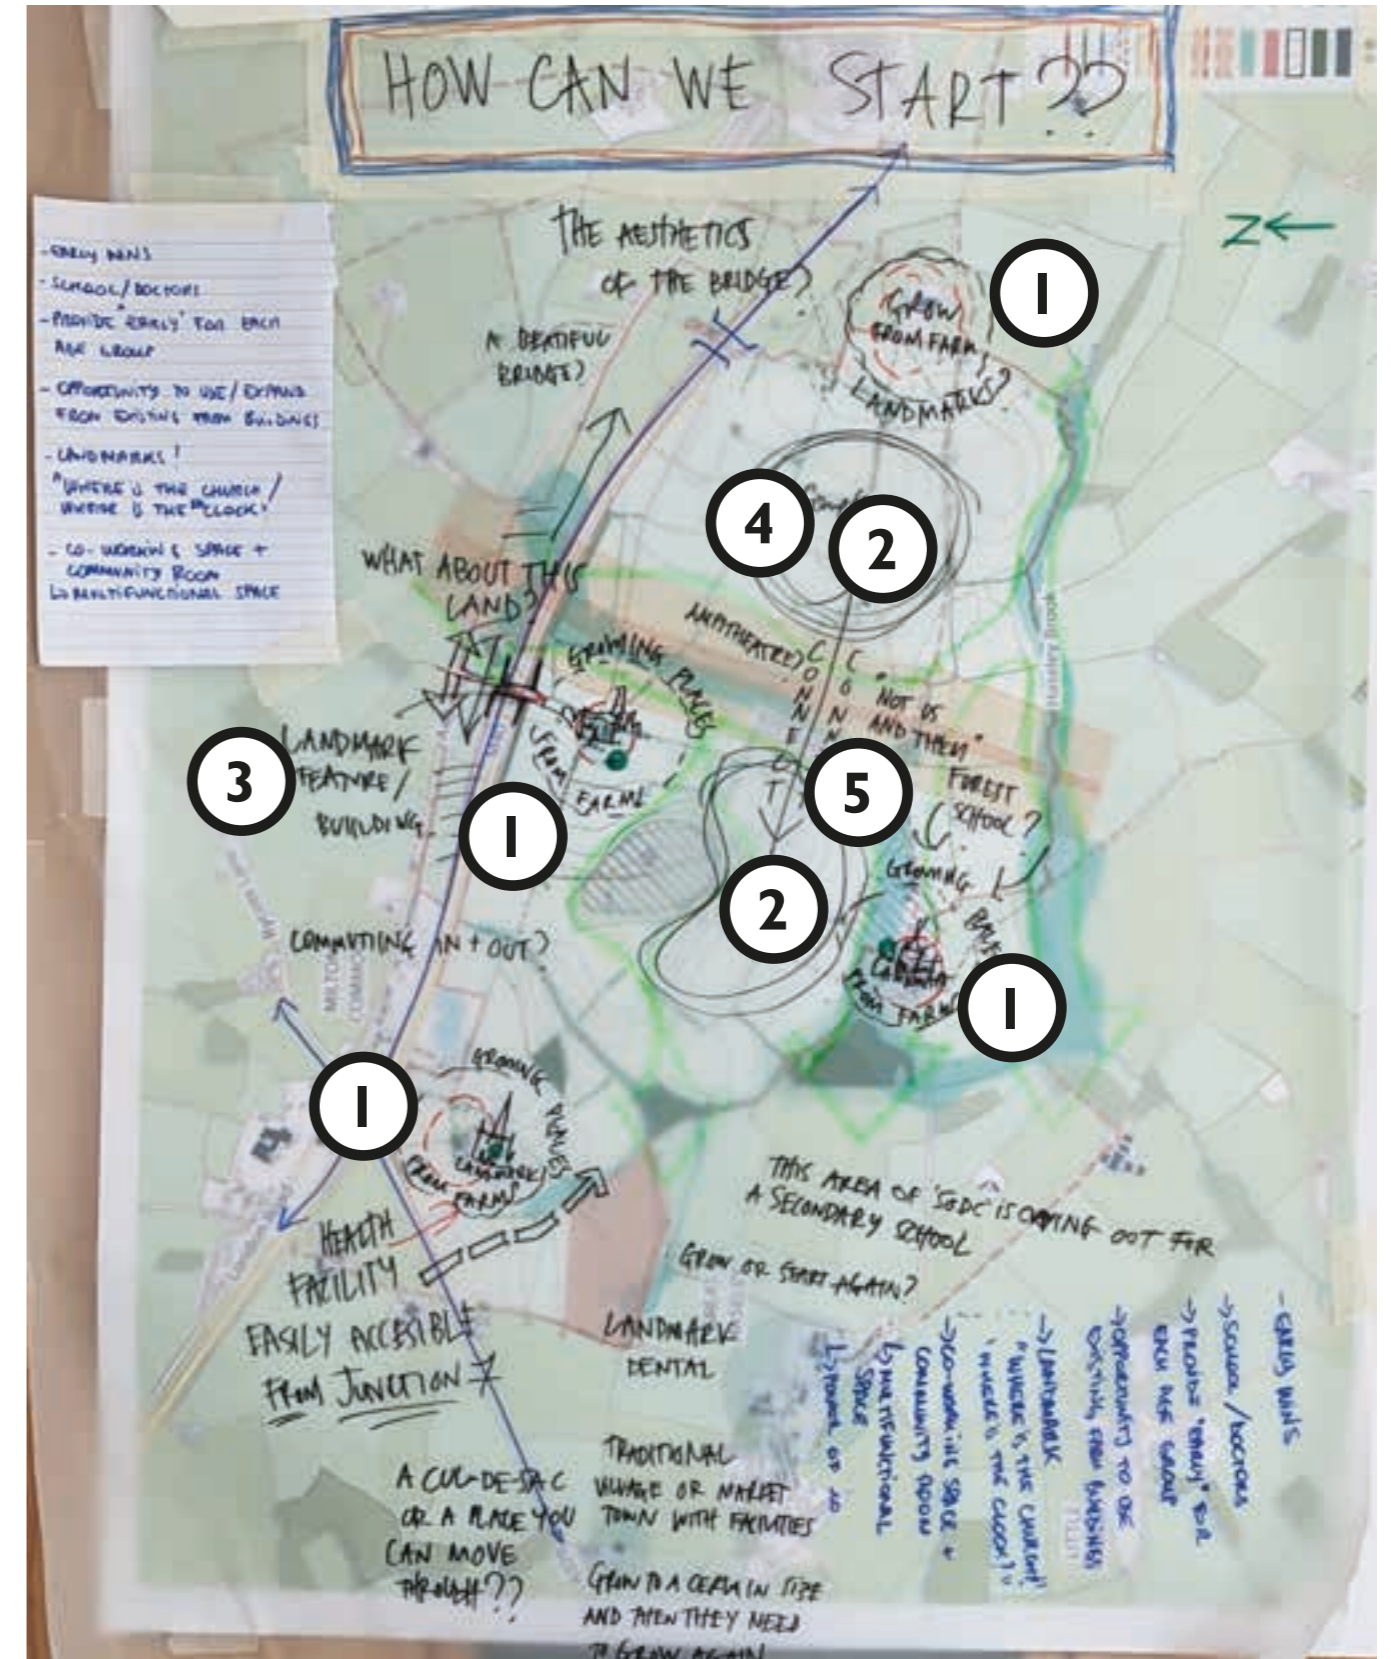 HOW CAN WE START??
- EARLY WINS
- SCHOOL/DOCTORS
- PROVIDE "EARLY" FOR EACH
AGE GROUP
- OPPORTUNITY TO USE/EXPAND
FROM EXISTING FARM BUILDINGS
- LANDMARKS!
"WHERE IS THE CHURCH/
WHERE IS THE "CLOCK"
- CO-WORKING SPACE +
COMMUNITY ROOM
↳ MULTIFUNCTIONAL SPACE
N
THE AESTHETICS
OF THE BRIDGE?
A BEATIFUL
BRIDGE?
GROW
FROM FARM,
LANDMARKS?
1
4
2
WHAT ABOUT THIS
LAND?
AMPITHEATRE?
CONNECT
CONN
"NOT US
AND THEM"
Haseley Brook
GROWING PLACES
FROM
FARMS
3
LANDMARK
FEATURE/
BUILDING
1
5
FOREST
SCHOOL?
2
GROWING
FROM FARM
1
COMMUTING IN + OUT?
MILTON
COMMON
1
GROWING PLACES
LANDMARK
FROM
FARMS
HEALTH
FACILITY
EASILY ACCESIBLE
FROM JUNCTION
THIS AREA OF 'SODC' IS CRYING OUT FOR
A SECONDARY SCHOOL
GROW OR START AGAIN?
LANDMARK
DENTAL
TRADITIONAL
VILLAGE OR MARKET
TOWN WITH FACILITIES
A CUL-DE-SAC
OR A PLACE YOU
CAN MOVE
THROUGH??
GROW TO A CERTAIN SIZE
AND THEN THEY NEED
TO GROW AGAIN
- EARLY WINS
→ SCHOOL/DOCTORS
→ PROVIDE "EARLY" FOR
EACH AGE GROUP
→ OPPORTUNITY TO USE
EXISTING FARM BUILDINGS
→ LANDMARK
"WHERE'S THE CHURCH?
"WHERE'S THE CLOCK?"
→ CO-WORKING SPACE +
COMMUNITY ROOM
↳ MULTIFUNCTIONAL
SPACE